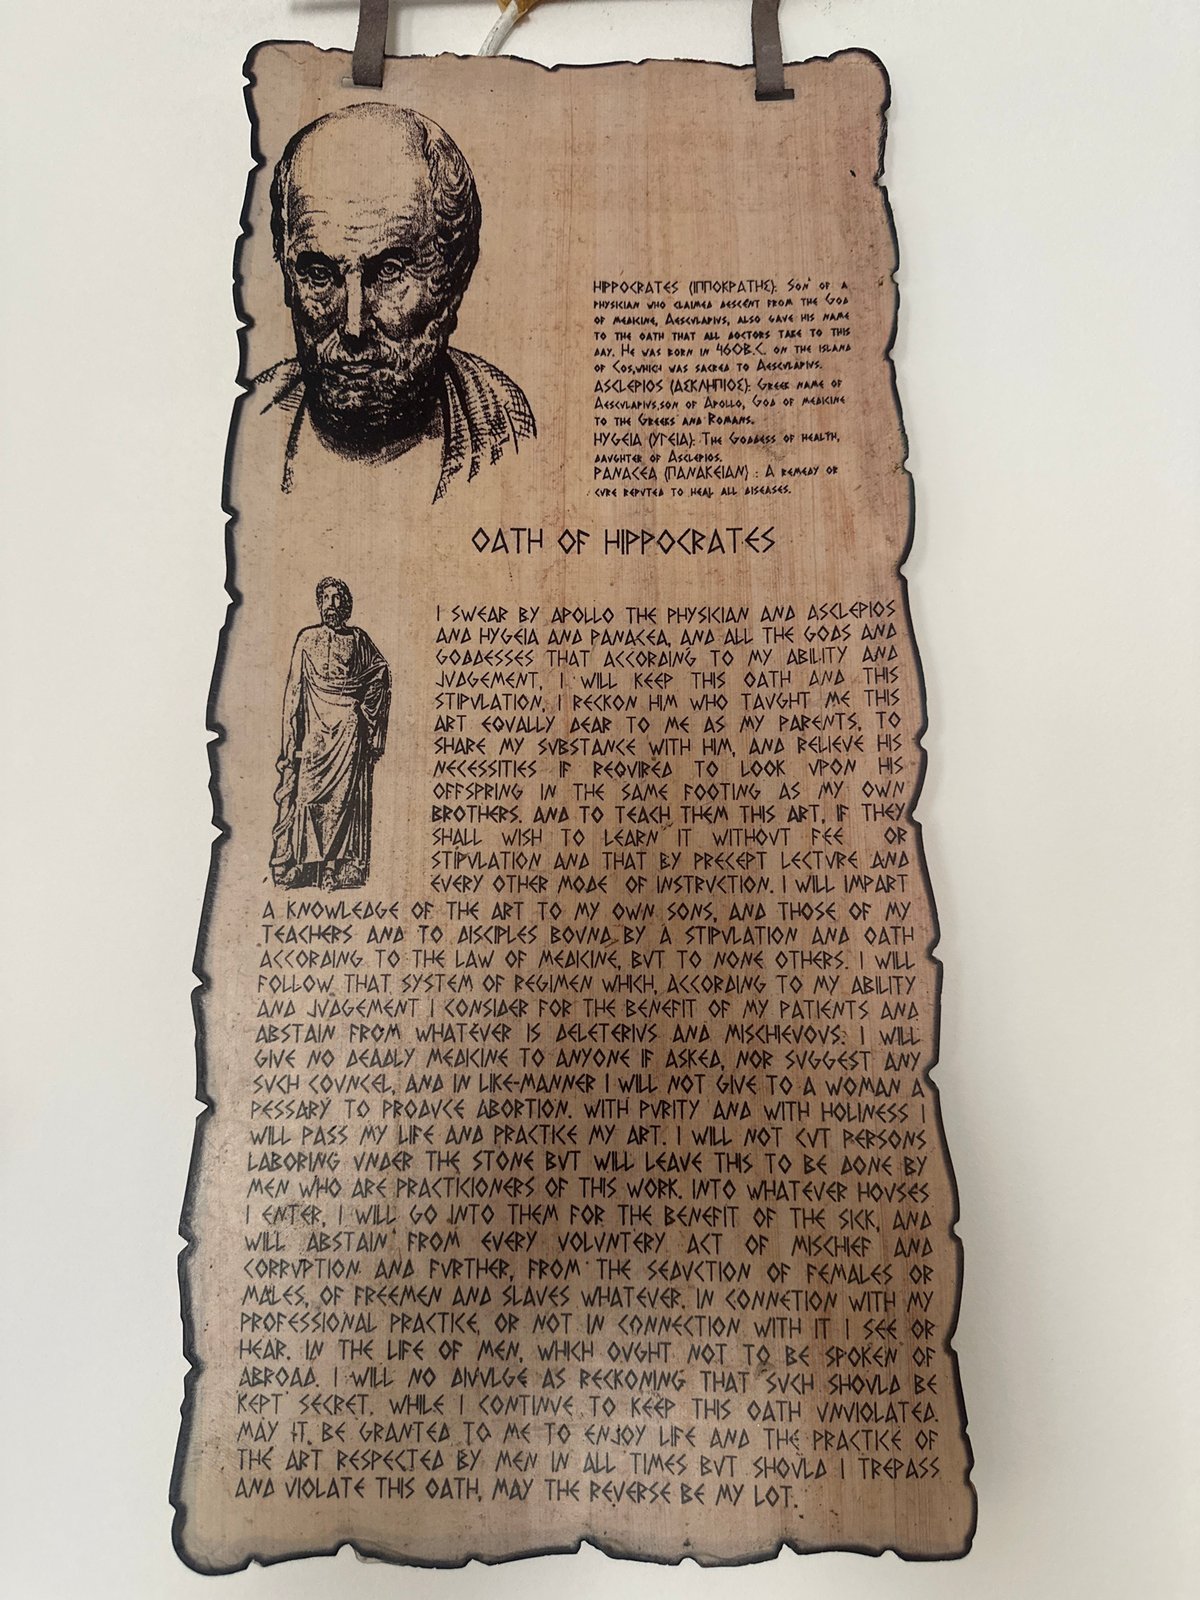 HIPPOCRATES (ΙΠΠΟΚΡΑΤΗΣ): SON OF A
PHYSICIAN WHO CLAIMED DESCENT FROM THE GOD
OF MEDICINE, AESCVLAPIVS, ALSO GAVE HIS NAME
TO THE OATH THAT ALL DOCTORS TAKE TO THIS
DAY. HE WAS BORN IN 460B.C. ON THE ISLAND
OF COS,WHICH WAS SACRED TO AESCVLAPIVS.
ASCLEPIOS (ΑΣΚΛΗΠΙΟΣ): GREEK NAME OF
AESCVLAPIVS,SON OF APOLLO, GOD OF MEDICINE
TO THE GREEKS AND ROMANS.
HYGEIA (ΥΓΕΙΑ): THE GODDESS OF HEALTH,
DAVGHTER OF ASCLEPIOS.
PANACEA (ΠΑΝΑΚΕΙΑΝ) : A REMEDY OR
CVRE REPVTED TO HEAL ALL DISEASES.
OATH OF HIPPOCRATES
I SWEAR BY APOLLO THE PHYSICIAN AND ASCLEPIOS
AND HYGEIA AND PANACEA, AND ALL THE GODS AND
GODDESSES THAT ACCORDING TO MY ABILITY AND
JVDGEMENT, I WILL KEEP THIS OATH AND THIS
STIPVLATION, I RECKON HIM WHO TAVGHT ME THIS
ART EQVALLY DEAR TO ME AS MY PARENTS, TO
SHARE MY SVBSTANCE WITH HIM, AND RELIEVE HIS
NECESSITIES IF REQVIRED TO LOOK VPON HIS
OFFSPRING IN THE SAME FOOTING AS MY OWN
BROTHERS. AND TO TEACH THEM THIS ART, IF THEY
SHALL WISH TO LEARN IT WITHOVT FEE OR
STIPVLATION AND THAT BY PRECEPT LECTVRE AND
EVERY OTHER MODE OF INSTRVCTION. I WILL IMPART
A KNOWLEDGE OF THE ART TO MY OWN SONS, AND THOSE OF MY
TEACHERS AND TO DISCIPLES BOVND BY A STIPVLATION AND OATH
ACCORDING TO THE LAW OF MEDICINE, BVT TO NONE OTHERS. I WILL
FOLLOW THAT SYSTEM OF REGIMEN WHICH, ACCORDING TO MY ABILITY
AND JVDGEMENT I CONSIDER FOR THE BENEFIT OF MY PATIENTS AND
ABSTAIN FROM WHATEVER IS DELETERIVS AND MISCHIEVOVS. I WILL
GIVE NO DEADLY MEDICINE TO ANYONE IF ASKED, NOR SVGGEST ANY
SVCH COVNCEL, AND IN LIKE-MANNER I WILL NOT GIVE TO A WOMAN A
PESSARY TO PRODVCE ABORTION. WITH PVRITY AND WITH HOLINESS I
WILL PASS MY LIFE AND PRACTICE MY ART. I WILL NOT CVT PERSONS
LABORING VNDER THE STONE BVT WILL LEAVE THIS TO BE DONE BY
MEN WHO ARE PRACTICIONERS OF THIS WORK. INTO WHATEVER HOVSES
I ENTER, I WILL GO INTO THEM FOR THE BENEFIT OF THE SICK, AND
WILL ABSTAIN FROM EVERY VOLVNTERY ACT OF MISCHIEF AND
CORRVPTION AND FVRTHER, FROM THE SEDVCTION OF FEMALES OR
MALES, OF FREEMEN AND SLAVES WHATEVER. IN CONNETION WITH MY
PROFESSIONAL PRACTICE, OR NOT IN CONNECTION WITH IT I SEE OR
HEAR. IN THE LIFE OF MEN, WHICH OVGHT NOT TO BE SPOKEN OF
ABROAD. I WILL NO DIVVLGE AS RECKONING THAT SVCH SHOVLD BE
KEPT SECRET. WHILE I CONTINVE TO KEEP THIS OATH VNVIOLATED.
MAY IT BE GRANTED TO ME TO ENJOY LIFE AND THE PRACTICE OF
THE ART RESPECTED BY MEN IN ALL TIMES BVT SHOVLD I TREPASS
AND VIOLATE THIS OATH, MAY THE REVERSE BE MY LOT.